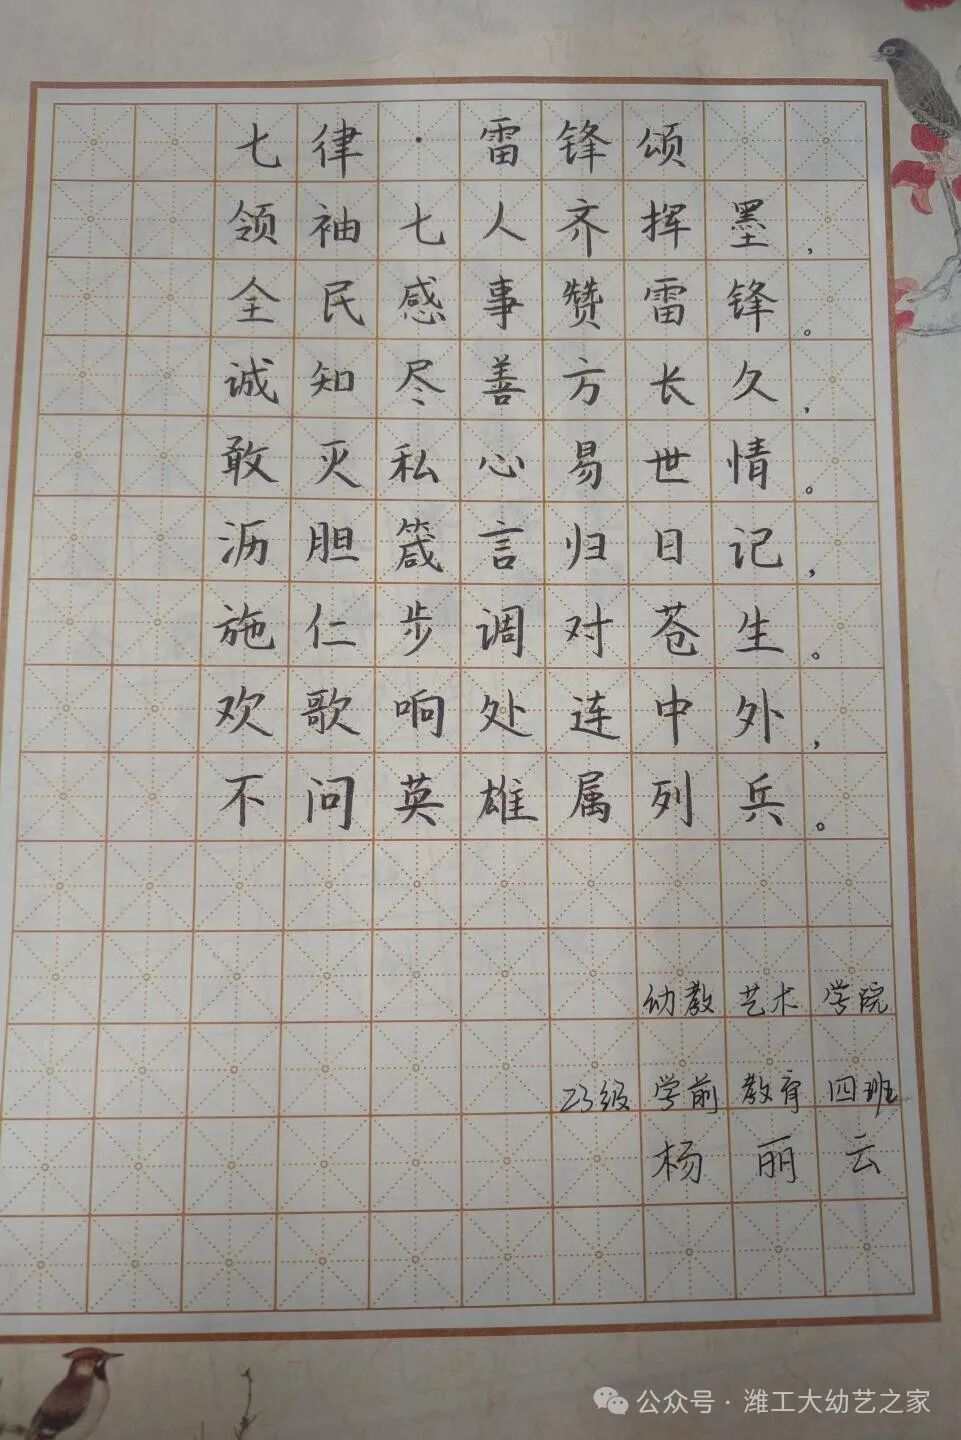 七律·雷锋颂
领袖七人齐挥墨，
全民感事赞雷锋。
诚知尽善方长久，
敢灭私心易世情。
沥胆箴言归日记，
施仁步调对苍生。
欢歌响处连中外，
不问英雄属列兵。
幼教艺术学院
23级学前教育四班
杨丽云
公众号·潍工大幼艺之家